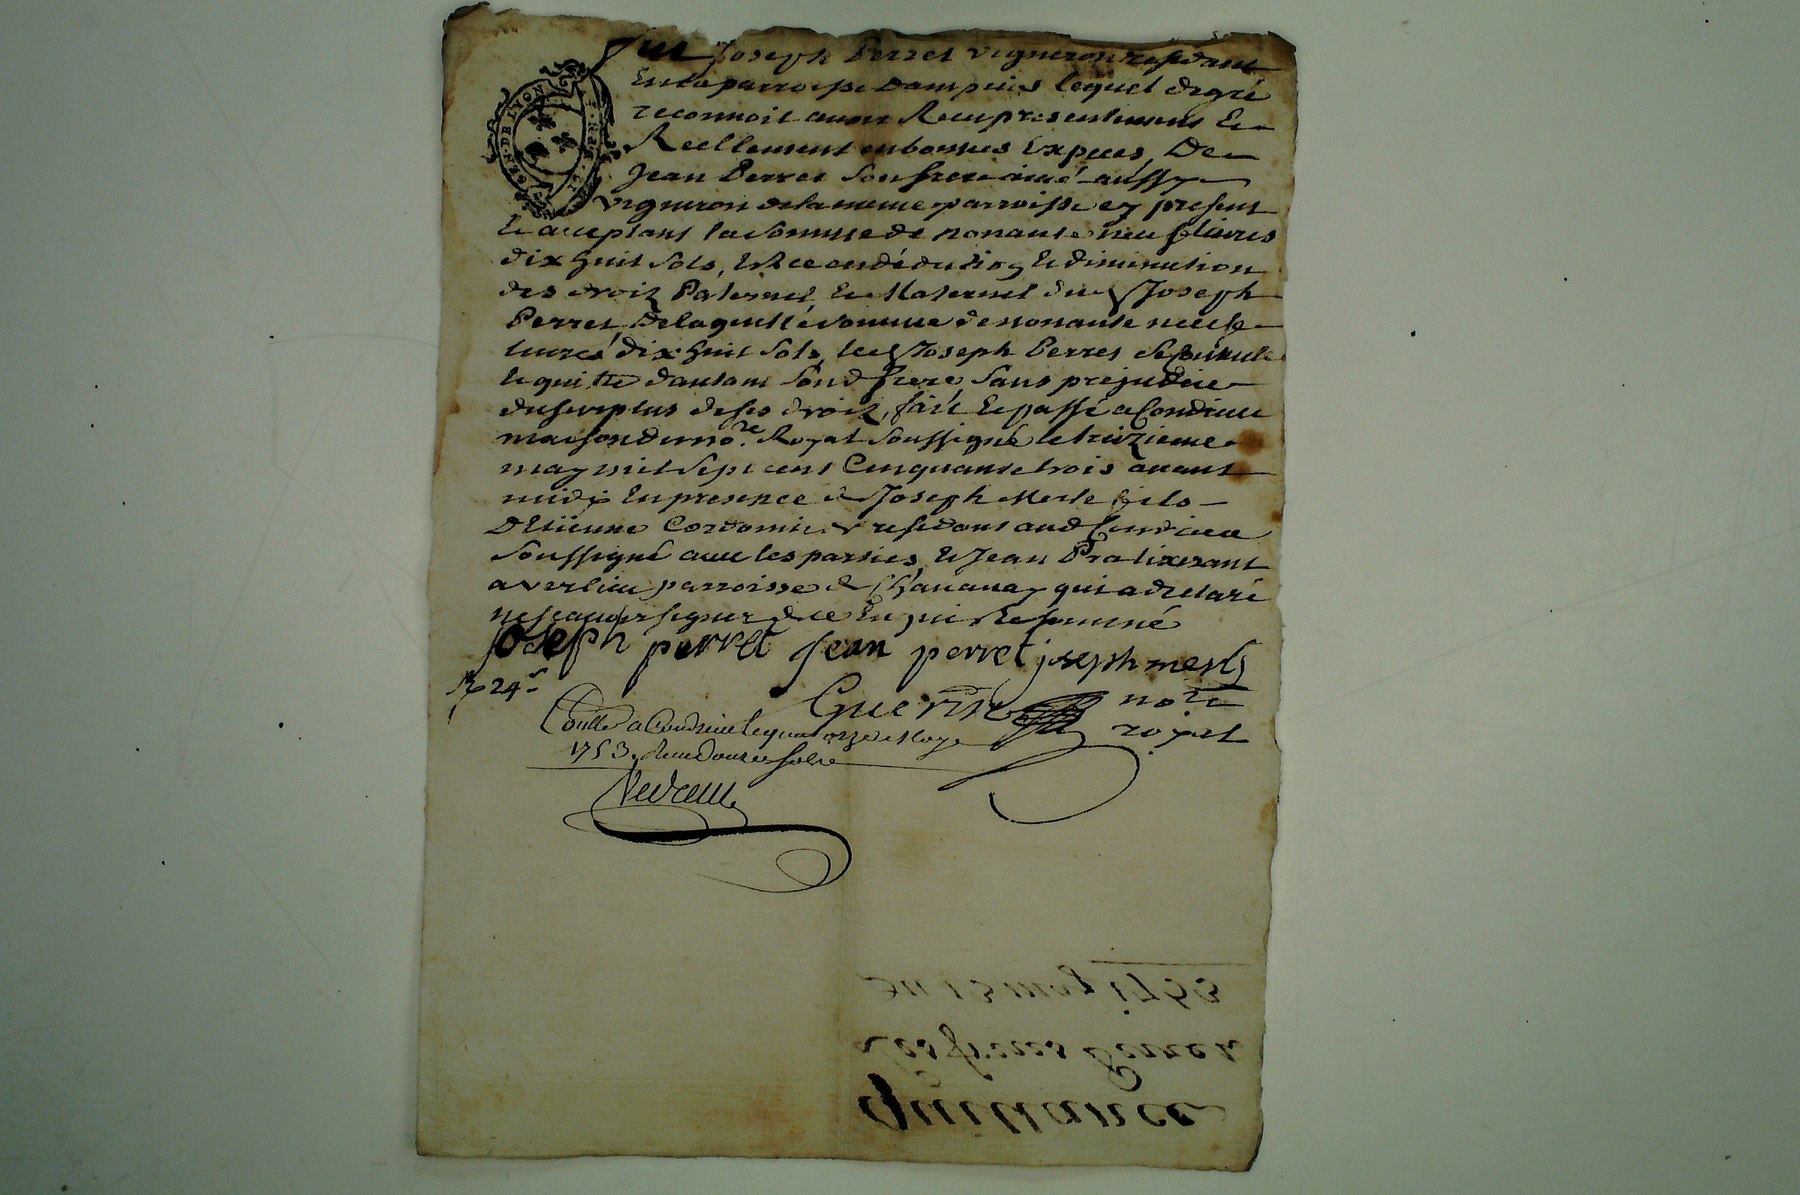 fut Joseph Perret vigneron residant
En la parroisse Dampuis lequel de gré
reconnoit avoir Reçu presentement Et
Reellement en bonnes Expeces, De
Jean Perret Son frere ainé aussy
vigneron de la meme parroisse ey present
Et aceptant la Somme de nonante neuf livres
dix huit sols, Et ce en déduction Et diminution
des droit Paternel Et Maternel du d Joseph
Perret, De laquelle Somme de nonante neuf
livres dix huit Sols, led Joseph Perret Se Contente
Et quitte d'autant Sond frere, Sans prejudice
du surplus de ses droit, fait Et passé a Condrieu
maison du no.re Royal Soussigné le treizieme
may mil Sept cent Cinquante trois avant
midy En presence de Joseph Merle fils
D'Etienne Cordonnier residant aud Condrieu
Soussigné avec les parties, Et Jean Prat
a verlieu parroisse de Chavanay qui a declaré
ne scavoir signer de ce Enquis Et Sommé
joseph perret jean perret joseph merle
24 s
Guerin no.re
royal
Conllé a Condrieu le quatorze May
1753. Reçu Douze sols
GEN. DE LYON
Quittance
Les freres Perret
du 13 may 1753